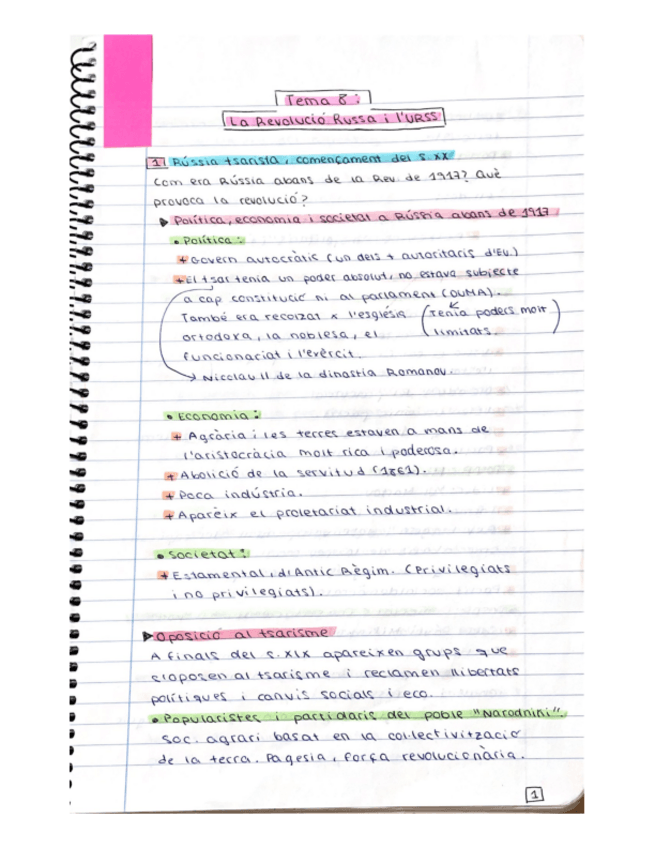 Tema 8:
La Revolució Russa i l'URSS
1 Rússia tsarista, començament del s. XX
Com era Rússia abans de la Rev de 1917? Què
provoca la revolució?
▶ Política, economia i societat a Rússia abans de 1917
• Política:
+ Govern autocràtic (un dels + autoritaris d'EU.)
+ El tsar tenia un poder absolut, no estava subjecte
a cap constitució ni al parlament (DUMA).
També era recolzat x l'església (Tenia poders molt
ortodoxa, la noblesa, el limitats.)
funcionariat i l'exèrcit.
→ Nicolau II de la dinastia Romanov.
• Economia:
+ Agrària i les terres estaven a mans de
l'aristocràcia molt rica i poderosa.
+ Abolició de la servitud (1861).
+ Poca indústria.
+ Apareix el proletariat industrial.
• Societat:
+ Estamental, d'Antic Règim. (Privilegiats
i no privilegiats).
▶ Oposició al tsarisme
A finals del s. XIX apareixen grups que
s'oposen al tsarisme i reclamen llibertats
polítiques i canvis socials i eco.
• Popularistes i partidaris del poble "Narodnini".
Soc. agrari basat en la col·lectivització
de la terra. Pagesia, força revolucionària.
1